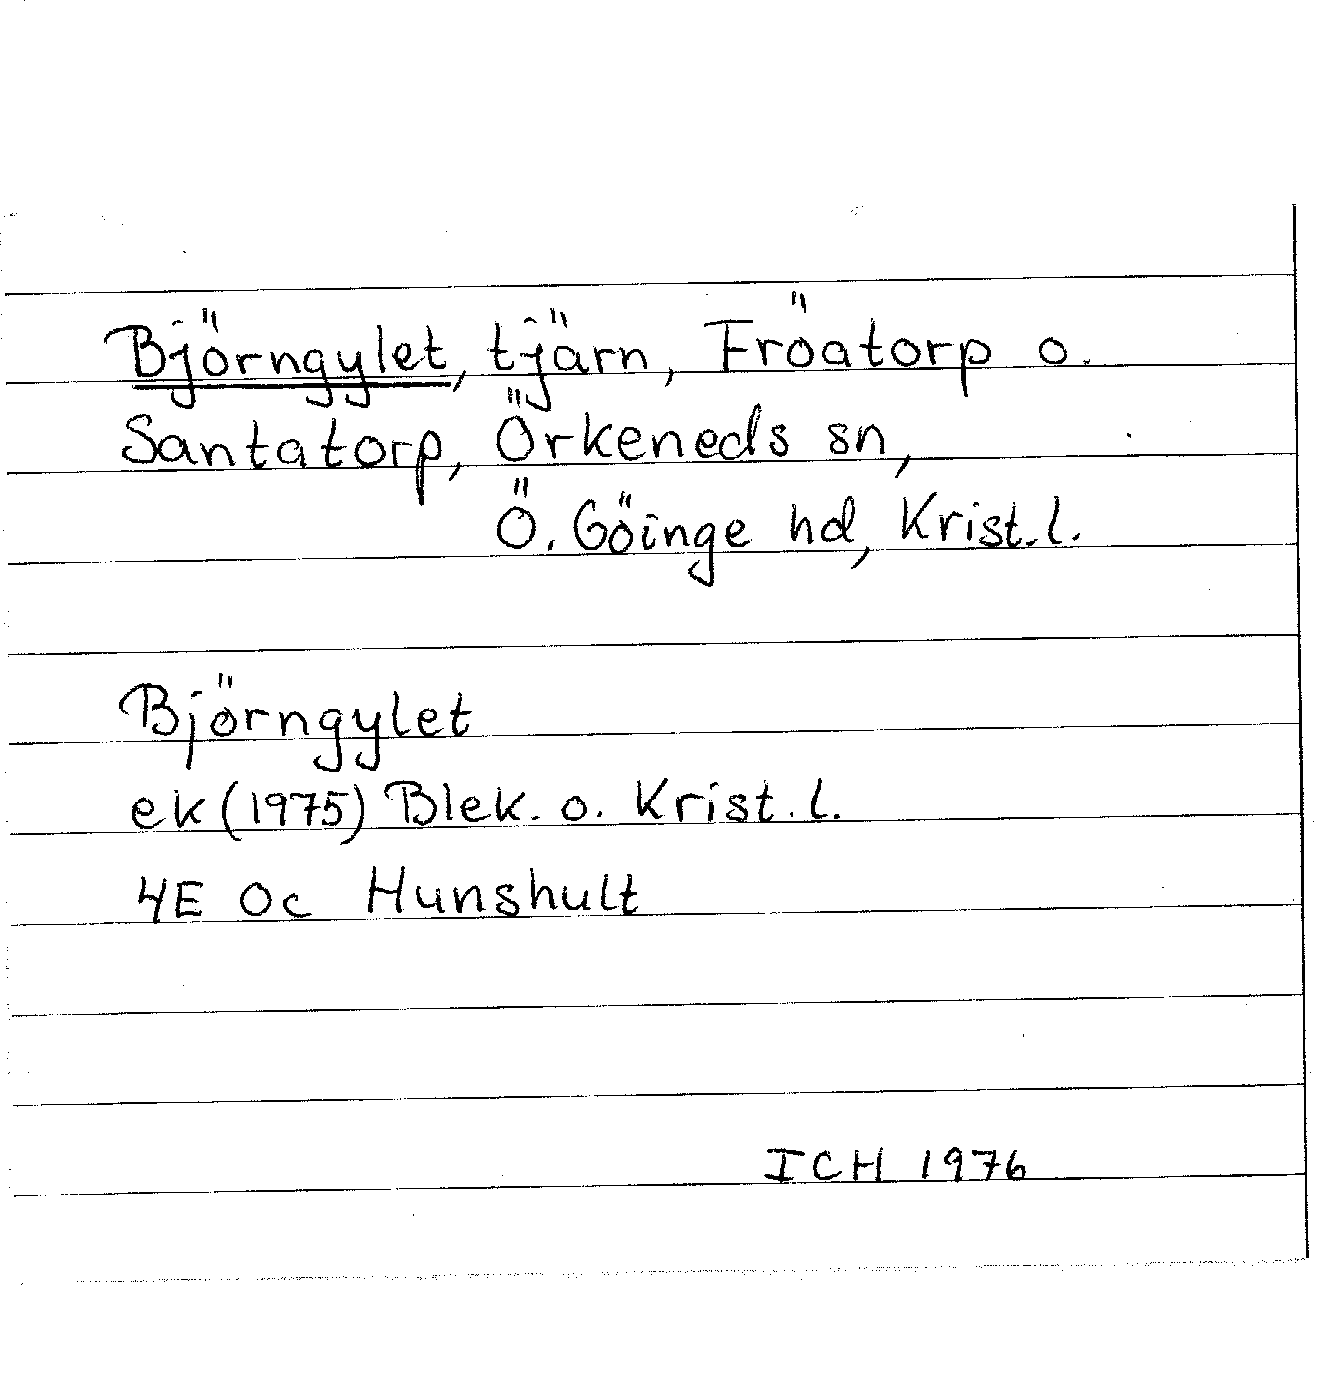 Björngylet, tjärn, Fröatorp o.
Santatorp, Örkeneds sn,
Ö. Göinge hd, Krist. l.
Björngylet
ek (1975) Blek. o. Krist. l.
4E 0c Hunshult
ICH 1976